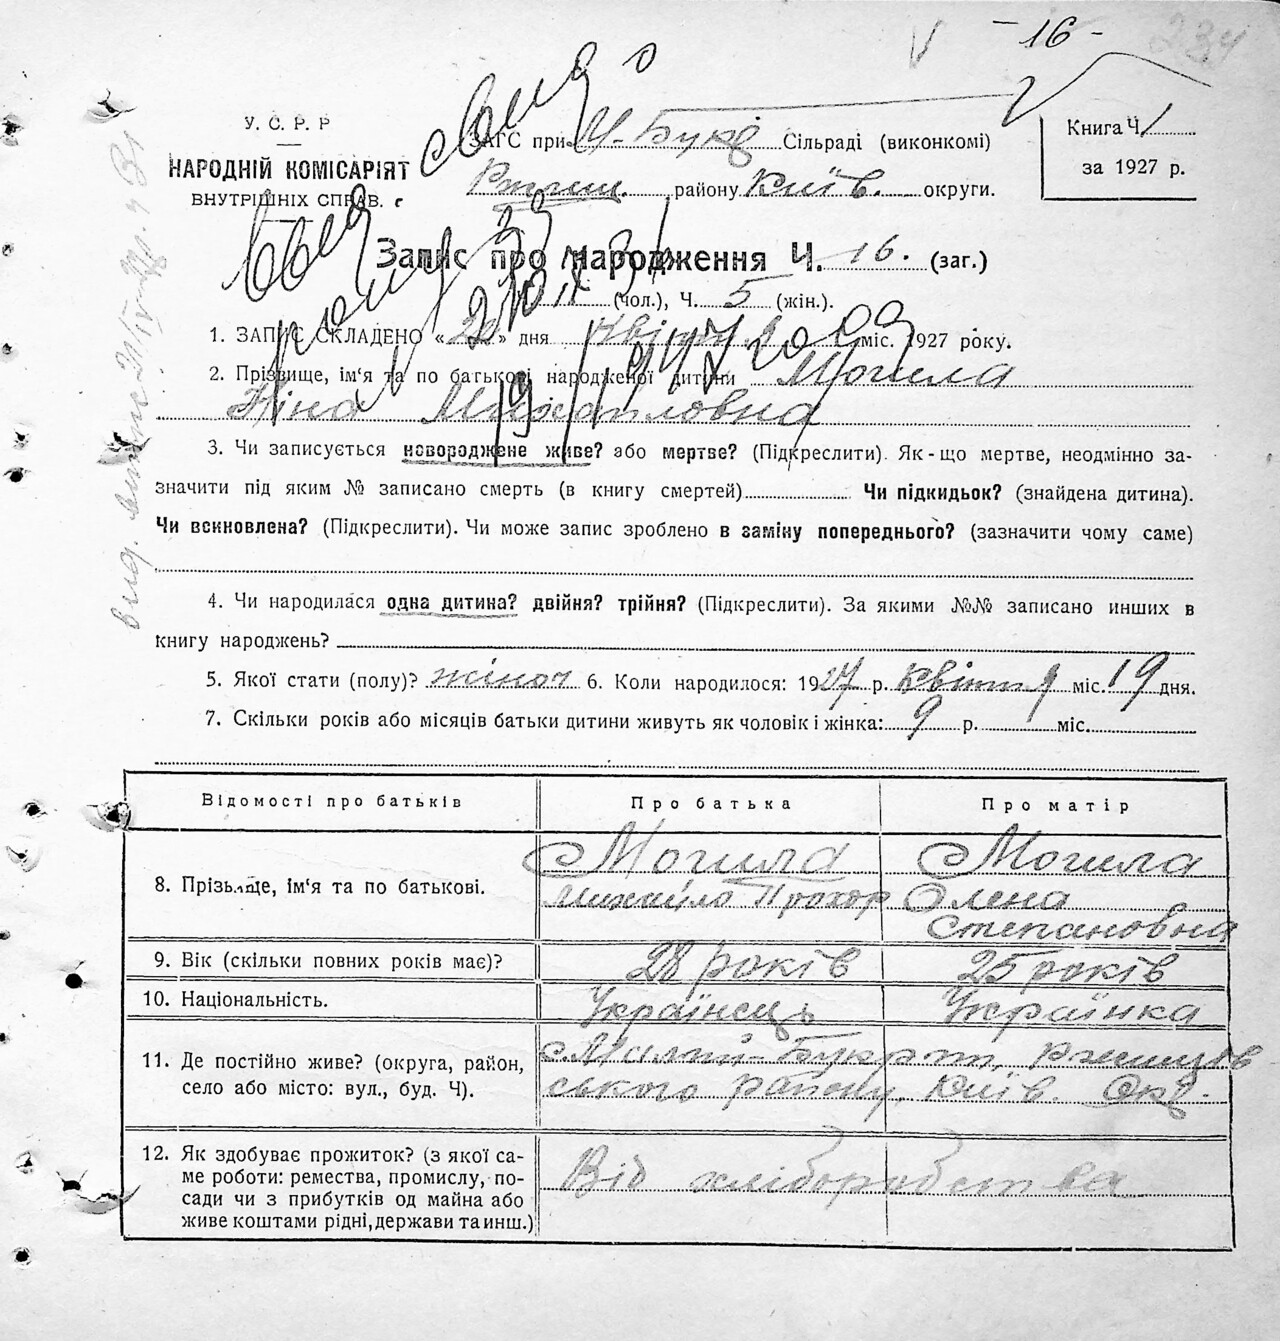 - 16 -
234
У. С. Р. Р
НАРОДНІЙ КОМІСАРІЯТ
ВНУТРІШНІХ СПРАВ.
ЗАГС при М-Букр Сільраді (виконкомі)
Ржищ. району Київ. округи.
Книга Ч. 1
за 1927 р.
Запис про народження Ч. 16. (заг.)
(чол.), Ч. 5 (жін.).
1. ЗАПИС СКЛАДЕНО « 20 » дня Квітня міс. 1927 року.
2. Прізвище, ім'я та по батькові народженої дитини Могила
Ніна Михайловна
3. Чи записується новороджене живе? або мертве? (Підкреслити). Як-що мертве, неодмінно за-
значити під яким № записано смерть (в книгу смертей) Чи підкидьок? (знайдена дитина).
Чи вскновлена? (Підкреслити). Чи може запис зроблено в заміну попереднього? (зазначити чому саме)
4. Чи народилася одна дитина? двійня? трійня? (Підкреслити). За якими №№ записано инших в
книгу народжень?
5. Якої стати (полу)? жіноч 6. Коли народилося: 1927 р. Квітня міс. 19 дня.
7. Скільки років або місяців батьки дитини живуть як чоловік і жінка: 9 р. міс.
Відомості про батьків Про батька Про матір
8. Прізьвище, ім'я та по батькові.
Могила
Михайло Прохор
Могила
Олена
Степановна
9. Вік (скільки повних років має)? 28 років 25 років
10. Національність. Українець Українка
11. Де постійно живе? (округа, район,
село або місто: вул., буд. Ч).
Малий-Букрин, Ржищів
ського району, Київ. Окр.
12. Як здобуває прожиток? (з якої са-
ме роботи: ремества, промислу, по-
сади чи з прибутків од майна або
живе коштами рідні, держави та инш.)
Від хліборобства